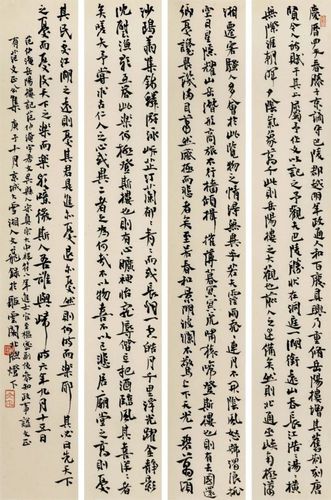 慶曆四年春滕子京謫守巴陵郡越明年政通人和百廢具興乃重修岳陽樓增其舊制刻唐
賢今人詩賦于其上屬予作文以記之予觀夫巴陵勝狀在洞庭一湖銜遠山吞長江浩浩湯湯橫
無際涯朝暉夕陰氣象萬千此則岳陽樓之大觀也前人之述備矣然則北通巫峽南極瀟
湘遷客騷人多會於此覽物之情得無異乎若夫霪雨霏霏連月不開陰風怒號濁浪排
空日星隱耀山岳潛形商旅不行檣傾楫摧薄暮冥冥虎嘯猿啼登斯樓也則有去國懷
鄉憂讒畏譏滿目蕭然感極而悲者矣至若春和景明波瀾不驚上下天光一碧萬頃
沙鷗翔集錦鱗游泳岸芷汀蘭郁郁青青而或長煙一空皓月千里浮光躍金靜影
沉璧漁歌互答此樂何極登斯樓也則有心曠神怡寵辱偕忘把酒臨風其喜洋洋者
矣嗟夫予嘗求古仁人之心或異二者之為何哉不以物喜不以己悲居廟堂之高則憂
其民處江湖之遠則憂其君是進亦憂退亦憂然則何時而樂耶其必曰先天下
之憂而憂後天下之樂而樂歟噫微斯人吾誰與歸時六年九月十五日
范仲淹岳陽樓記范仲淹字希文
有范文正公集庚子十月京城大雪湘人文龍錄於聽雲閣北牕燈下